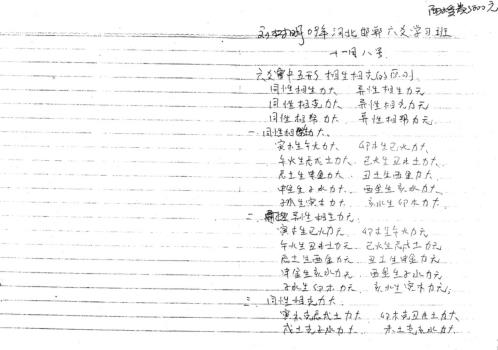 两本书卷5800元
刘树明09年河北邯郸六爻学习班
十一月八号
六爻当中五行相生相克的区别
同性相生力大 异性相生力元
同性相克力大 异性相克力元
同性相帮力大 异性相帮力元
一、同性相生力大
寅木生午火力大 卯木生巳火力大
午火生辰戌土力大 巳火生丑未土力大
辰土生申金力大 丑土生酉金力大
申金生子水力大 酉金生亥水力大
子水生寅木力大 亥水生卯木力大
二、异性相生力元
寅木生巳火力元 卯木生午火力元
午火生丑未土力元 巳火生辰戌土力元
辰土生酉金力元 丑土生申金力元
申金生亥水力元 酉金生子水力元
子水生卯木力元 亥水生寅木力元
三、同性相克力大
寅木克辰戌土力大 卯木克丑未土力大
戌土克子水力大 未土克亥水力大